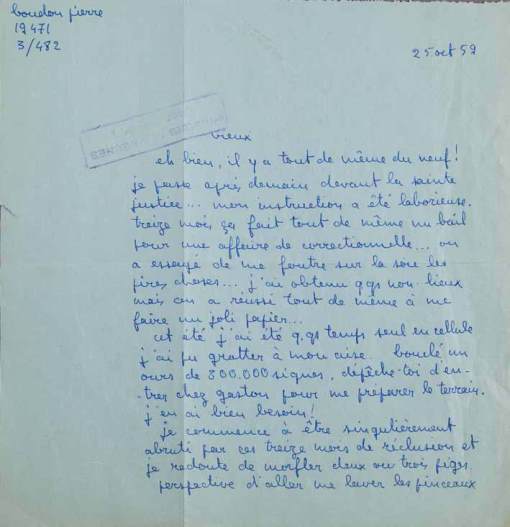 boudou pierre
19471
3/482
25 oct 59
vieux
eh bien, il y a tout de même du neuf!
je passe après demain devant la sainte
justice... mon instruction a été laborieuse.
treize mois, ça fait tout de même un bail
pour une affaire de correctionnelle... on
a essayé de me foutre sur la soie les
pires choses... j'ai obtenu qqs non-lieux
mais on a réussi tout de même à me
faire un joli papier...
cet été j'ai été qqs temps seul en cellule
j'ai pu gratter à mon aise. bouclé un
ours de 300.000 signes, dépêche-toi d'en-
-trer chez gaston pour me préparer le terrain.
j'en ai bien besoin!
je commence à être singulièrement
abruti par ces treize mois de réclusion et
je redoute de morfler deux ou trois piges.
perspective d'aller me laver les pinceaux